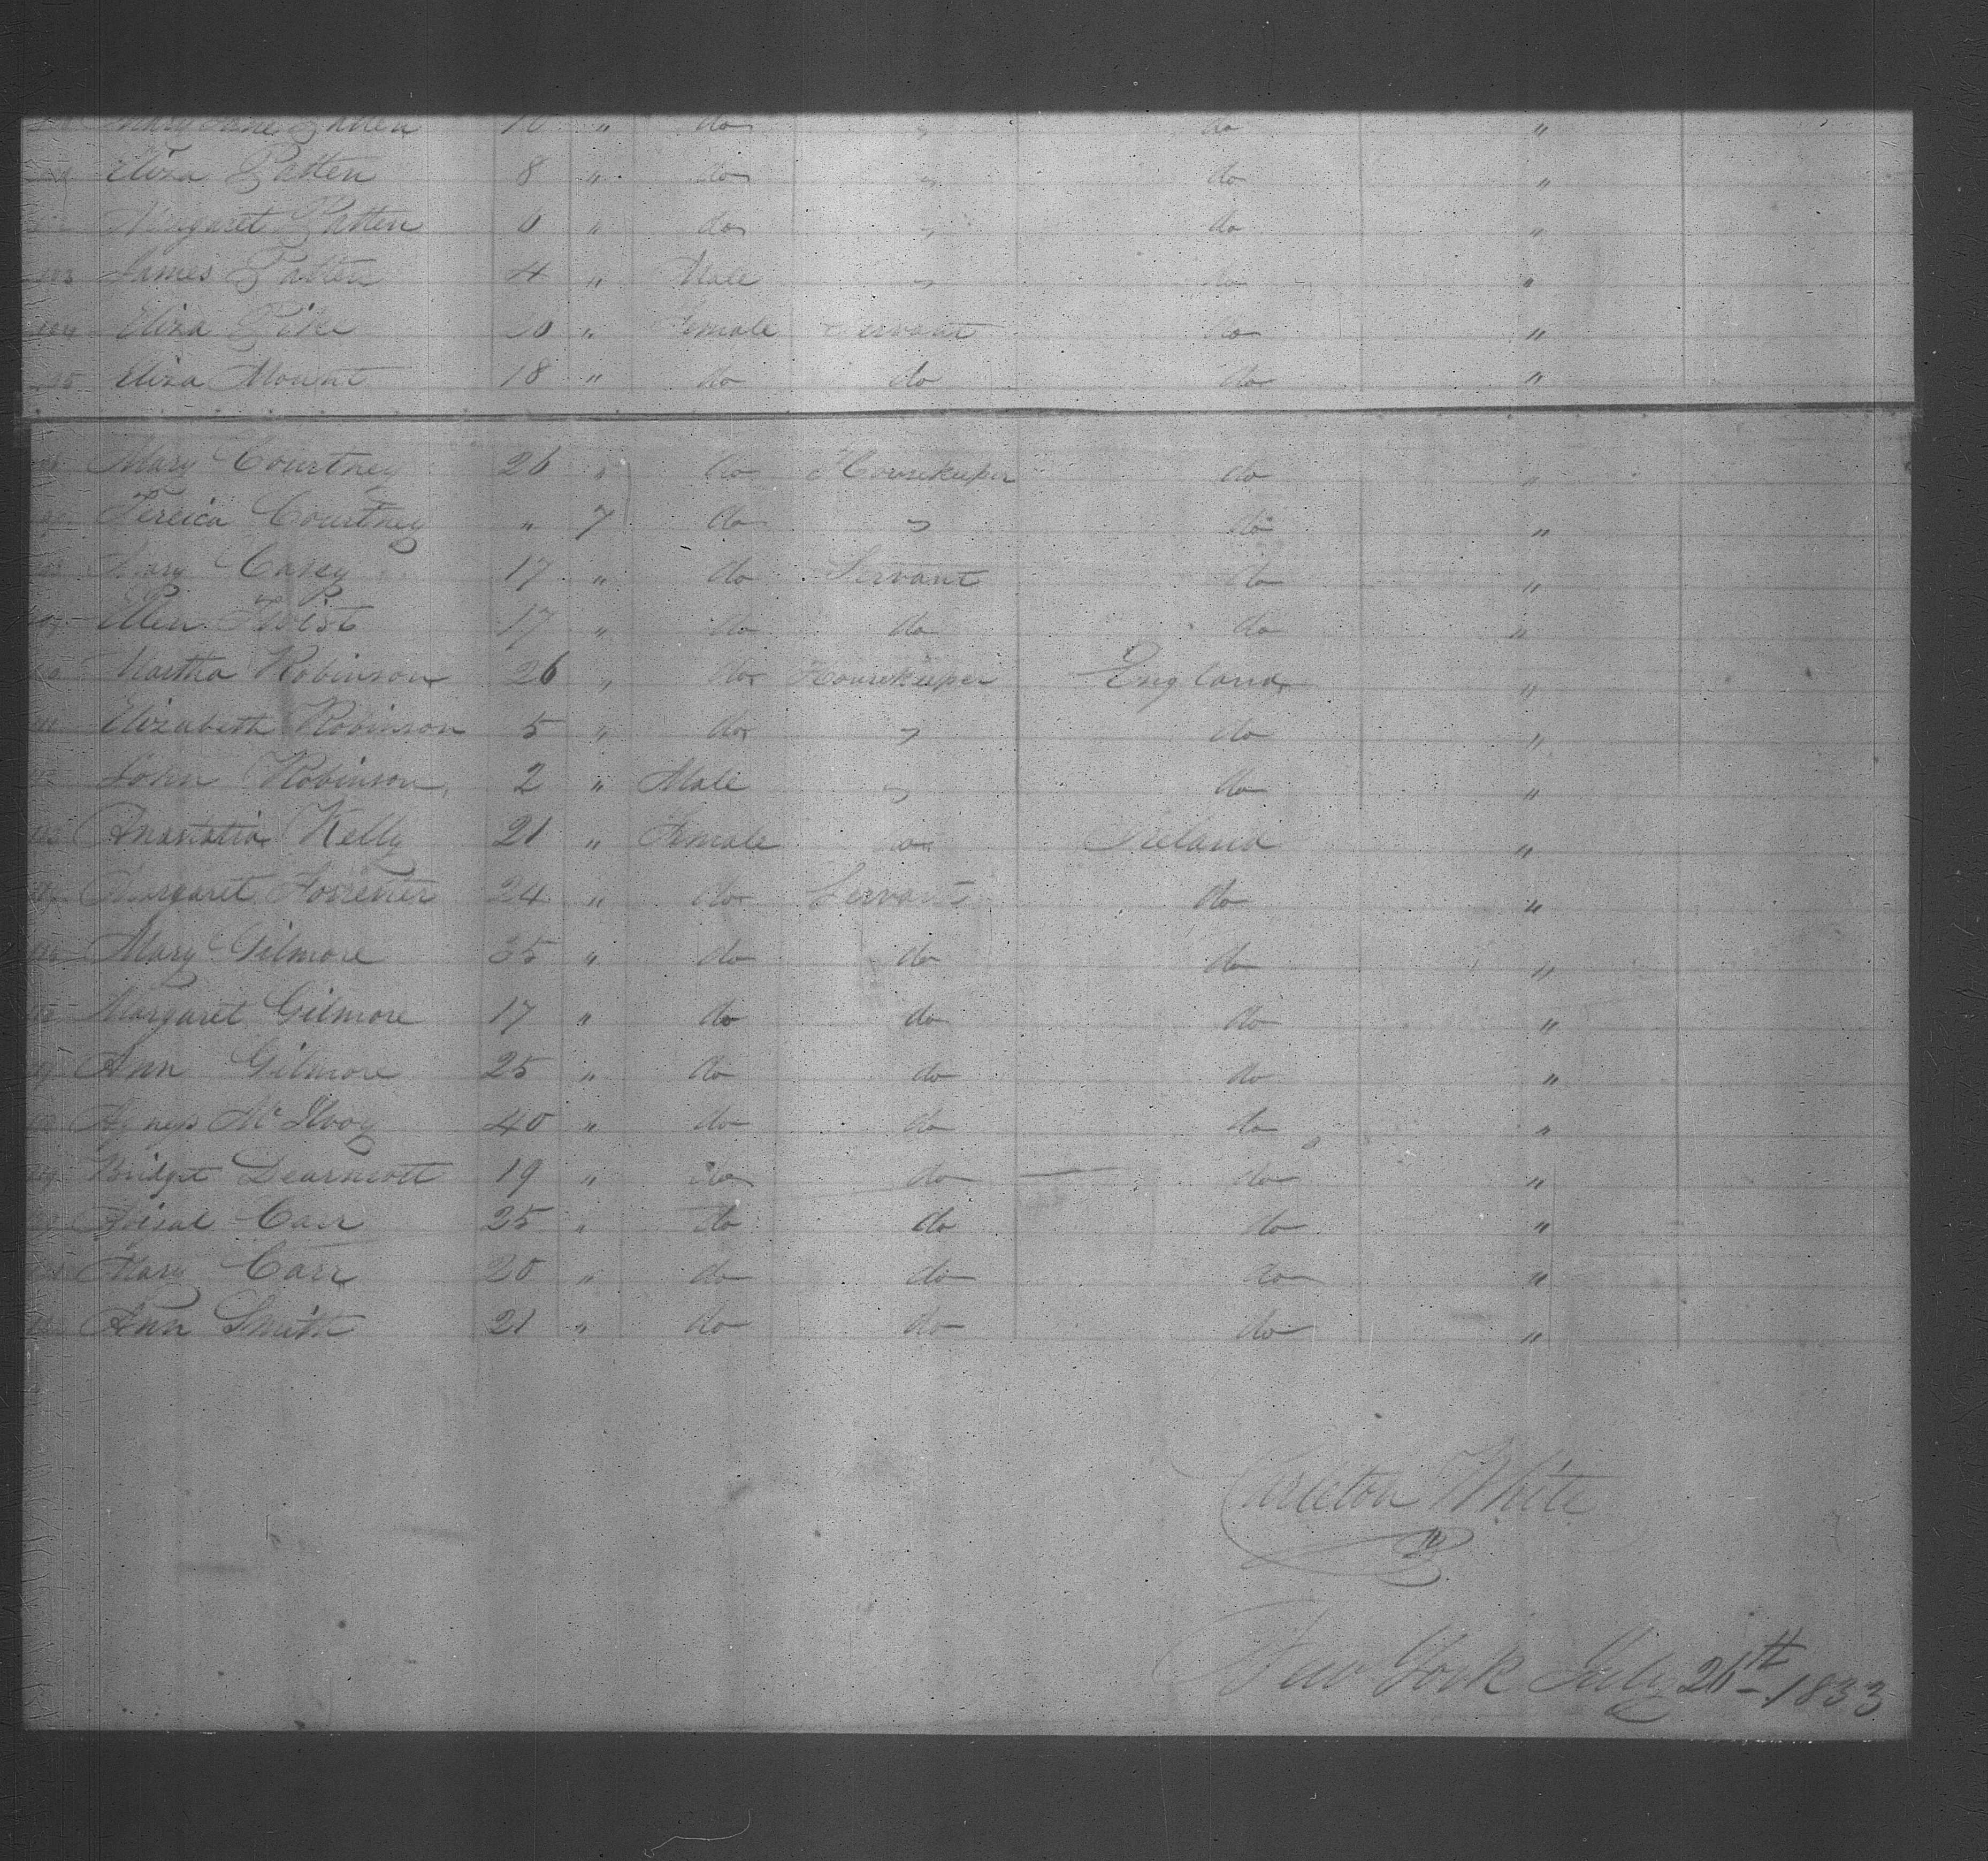 Mary Jane Patten 10 " do " do "
Eliza Patten 8 " do " do "
Margaret Patten 6 " do " do "
103 James Patten 4 " Male " do "
104 Eliza Pike 20 " Female Servant do "
Eliza Mount 18 " do do do "
Mary Courtney 26 " do Housekeeper do "
Courtney " 7 do " do "
Mary Casey 17 " do Servant do "
Ellen Twist 17 " do do do "
Martha Robinson 26 " do Housekeeper England "
111 Elizabeth Robinson 5 " do " do "
John Robinson 2 " Male " do "
Anastatia Kelly 21 " Female do Ireland "
Margaret Forrester 24 " do Servant do "
Mary Gilmore 35 " do do do "
Margaret Gilmore 17 " do do do "
Ann Gilmore 25 " do do do "
Agness Mc Ilvoy 40 " do do do "
Bridget 19 " do do do "
Carr 25 " do do do "
Mary Carr 20 " do do do "
Ann Smith 21 " do do do "
Carleton White
New York July 26th 1833